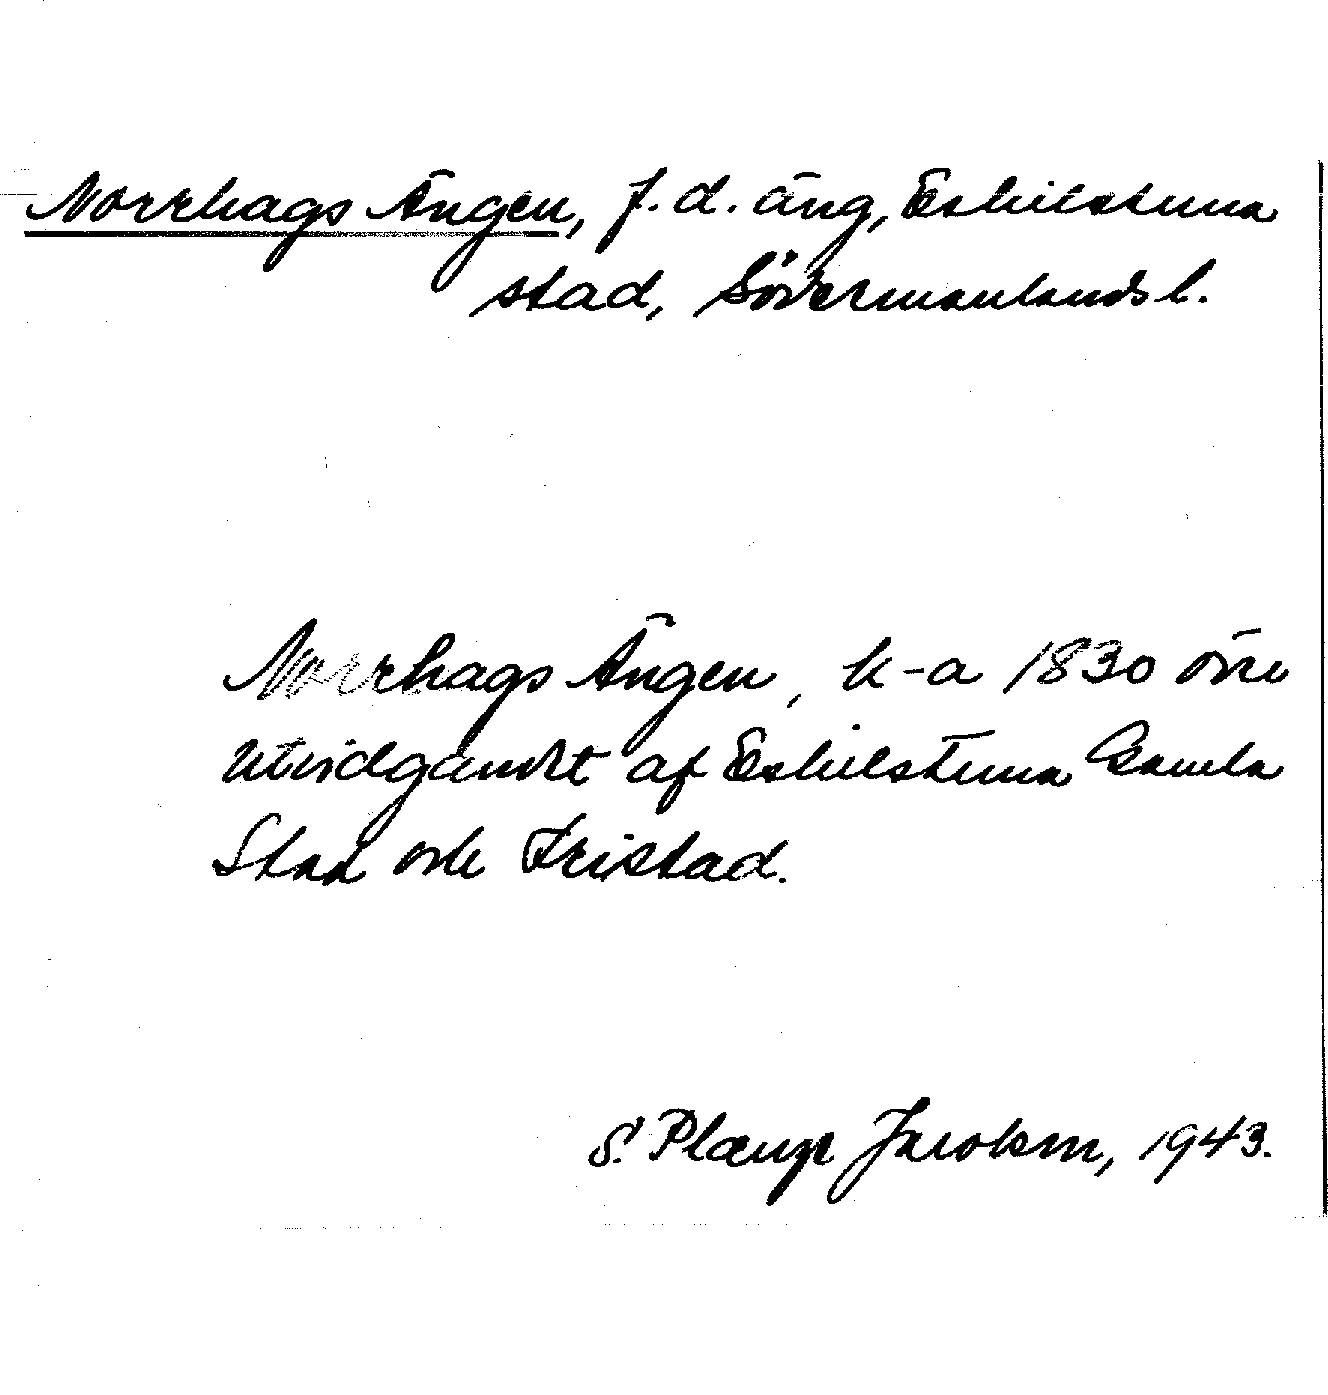 Norrhags Ängen, f.d. äng, Eskilstuna
stad, Södermanlands l.
Norrhags Ängen, k-a 1830 övre
utvidgandet af Eskilstuna Gamla
Stad och Fristad.
S. Plænge Jacobson, 1943.